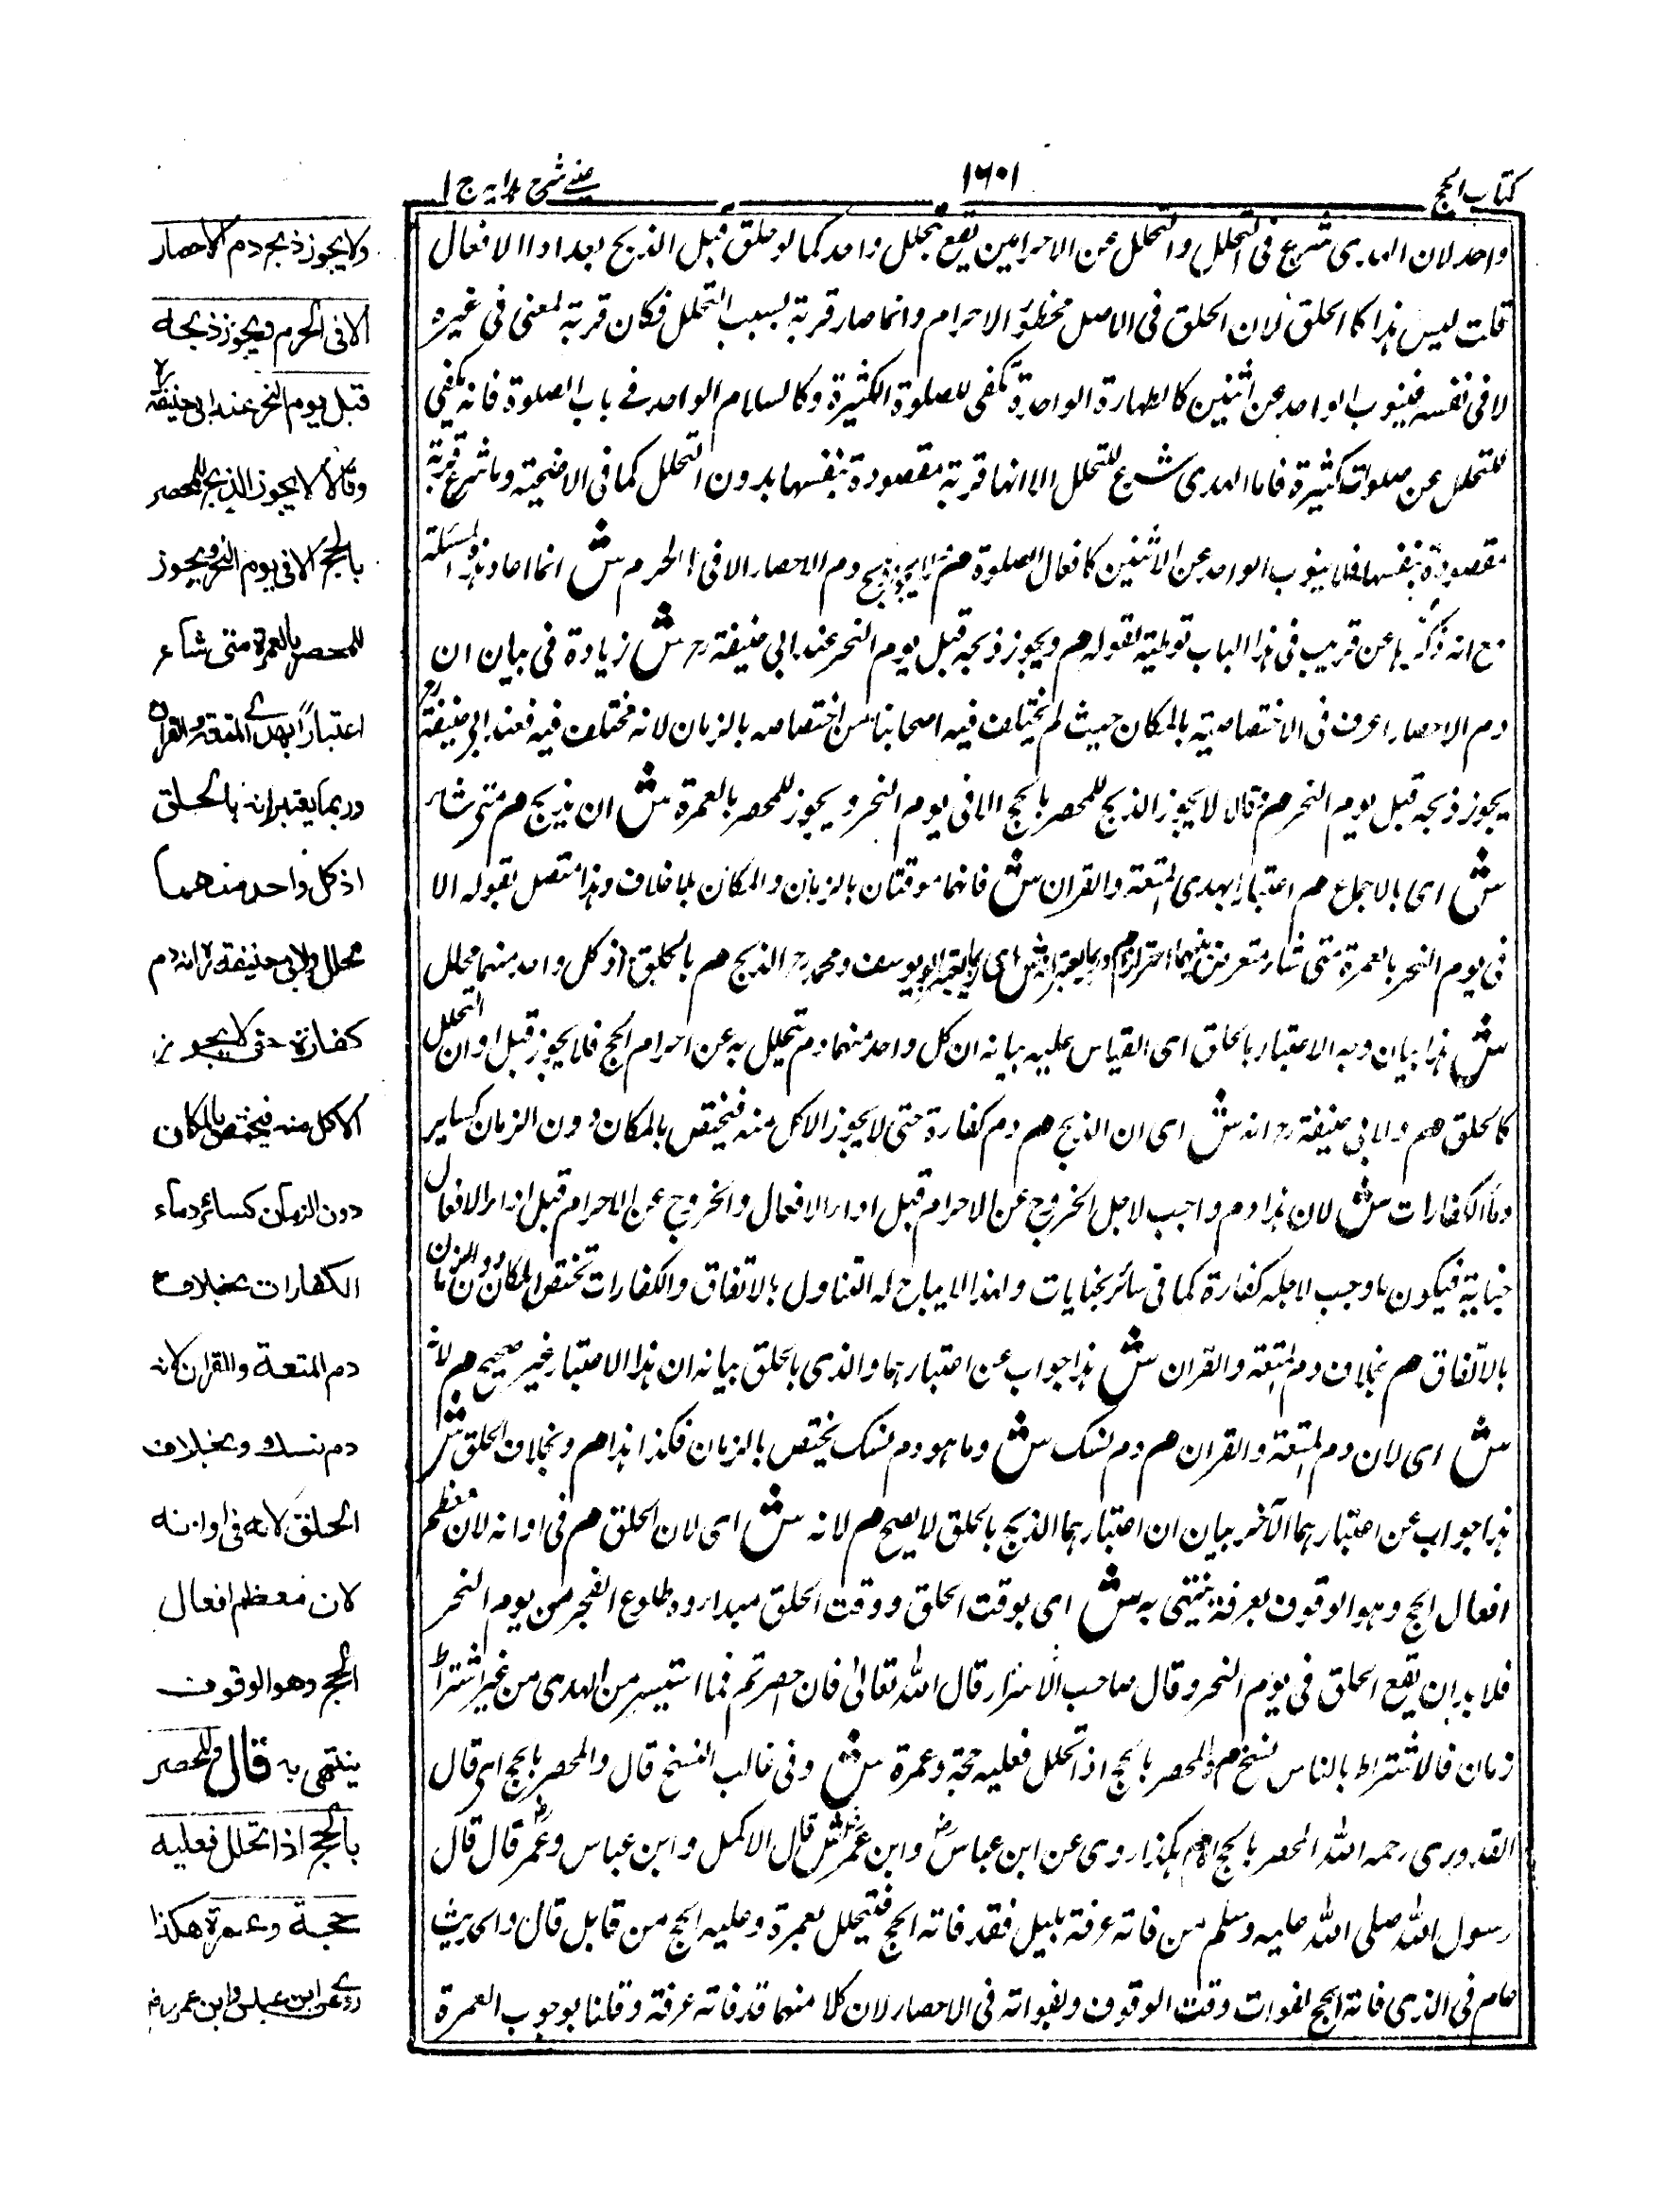 كتاب الحج
١٦٠١
عيني شرح هدايه ج ١
واحد لان الهدى شرع فى التحلل والتحلل عن الاحرامين يقع بتحلل واحد كما لو حلق قبل الذبح بعد اداء الافعال
قلت ليس هذا كالحلق لان الحلق فى الاصل محظور الاحرام وانما صار قربة لسبب التحلل فكان قربة لمعنى فى غيره
لا فى نفسه فينوب الواحد عن اثنين كالطهارة الواحدة تكفى للصلوة الكثيرة وكالسلام الواحد فى باب الصلوة فانه يكفى
للتحلل عن صلوات كثيرة فاما الهدى شرع للتحلل الا انها قربة مقصودة بنفسها بدون التحلل كما فى الاضحية وما شرع قربة
مقصودة بنفسها فلا ينوب الواحد عن الاثنين كافعال الصلوة هم لا يجوز ذبح دم الاحصار الا فى الحرم ش انما اعاد هذه المسئلة
مع انه ذكرها عن قريب فى هذا الباب توطية لقوله هم ويجوز ذبحه قبل يوم النحر عند ابى حنيفة رح ش زيادة فى بيان ان
دم الاحصار اعرف فى الاختصاصية بالمكان حيث لم يختلف فيه اصحابنا من اختصاصه بالزمان لانه مختلف فيه فعند ابى حنيفة رح
يجوز ذبحه قبل يوم النحر هم وقالا لا يجوز الذبح للمحصر بالحج الا فى يوم النحر ويجوز للمحصر بالعمرة ش ان يذبح هم متى شاء
ش اى بالاجماع هم اعتبارا بهدى المتعة والقران ش فانهما موقتان بالزمان والمكان بلا خلاف وهذا متصل بقوله الا
فى يوم النحر بالعمرة متى شاء معترض بينهما هم وربما يعتبرانه ش اى ربما يعتبر ابو يوسف ومحمد رح الذبح هم بالحلق اذ كل واحد منهما محلل
ش هذا بيان وجه الاعتبار بالحلق اى القياس عليه بيانه ان كل واحد منهما دم يتحلل به عن احرام الحج فلا يجوز قبل اوان التحلل
كالحلق هم ولابى حنيفة رح انه ش اى ان الذبح هم دم كفارة حتى لا يجوز الاكل منه فيختص بالمكان دون الزمان كساير
دماء الكفارات ش لان هذا دم واجب لاجل الخروج عن الاحرام قبل اداء الافعال والخروج عن الاحرام قبل اداء الافعال
جناية فيكون ما وجب لاجله كفارة كما فى سائر الجنايات ولهذا لا يباح له التناول بالاتفاق والكفارات تختص بالمكان دون الزمان
بالاتفاق هم بخلاف دم المتعة والقران ش هذا جواب عن اعتبارهما والذى بالحلق بيانه ان هذا الاعتبار غير صحيح هم لانه
ش اى لان دم المتعة والقران هم دم نسك ش وما هو دم نسك يختص بالزمان فكذا هذا هم وبخلاف الحلق ش
هذا جواب عن اعتبارهما الآخر بيان ان اعتبارهما الذبح بالحلق لا يصح هم لانه ش اى لان الحلق هم فى اوانه لان معظم
افعال الحج وهو الوقوف بعرفة ينتهى به ش اى بوقت الحلق ووقت الحلق مبداءوه طلوع الفجر من يوم النحر
فلا بد ان يقع الحلق فى يوم النحر وقال صاحب الاسرار قال الله تعالى فان احصرتم فما استيسر من الهدى من غير اشتراط
زمان فالاشتراط بالناس نسخ هم والمحصر بالحج اذا تحلل فعليه حجة وعمرة ش وفى غالب النسخ قال والمحصر بالحج اى قال
القدورى رحمه الله المحصر بالحج هم هكذا روى عن ابن عباس رض وابن عمر رض ش قال الاكمل وابن عباس وعمر رض قال قال
رسول الله صلى الله عليه وسلم من فاته عرفة بليل فقد فاته الحج فليتحلل بعمرة وعليه الحج من قابل قال والحديث
عام فى الذى فاته الحج لفوات وقت الوقوف ولفواته فى الاحصار لان كلا منهما قد فاته عرفة وقلنا بوجوب العمرة
ولا يجوز ذبح دم الاحصار
الا فى الحرم ويجوز ذبحه
قبل يوم النحر عند ابى حنيفة رح
وقالا لا يجوز الذبح للمحصر
بالحج الا فى يوم النحر ويجوز
للمحصر بالعمرة متى شاء
اعتبارا بهدى المتعة والقران
وربما يعتبرانه بالحلق
اذ كل واحد منهما
محلل ولابى حنيفة رح انه دم
كفارة حتى لا يجوز
الاكل منه فيختص بالمكان
دون الزمان كسائر دماء
الكفارات بخلاف
دم المتعة والقران لانه
دم نسك وبخلاف
الحلق لانه فى اوانه
لان معظم افعال
الحج وهو الوقوف
ينتهى به قال والمحصر
بالحج اذا تحلل فعليه
حجة وعمرة هكذا
روى عن ابن عباس وابن عمر رض